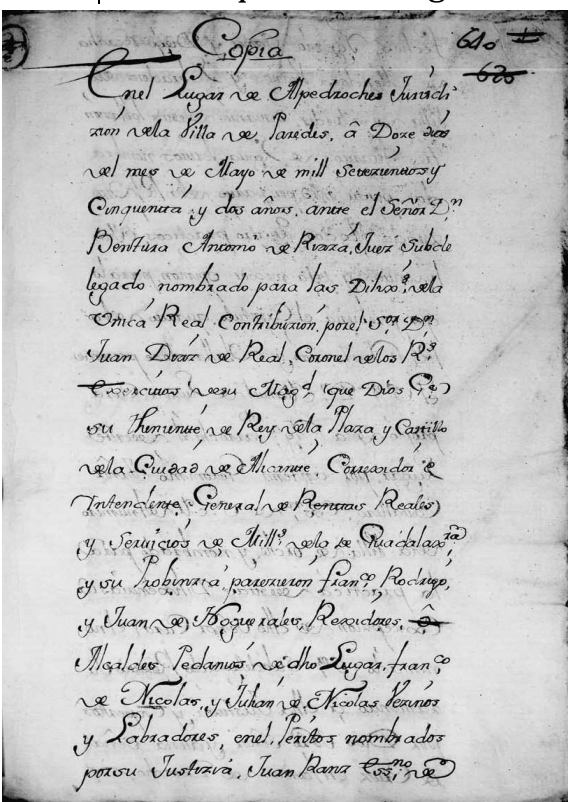 Copia
640
620
Enel Lugar de Alpedroches Jurisdi
zion dela Villa de Paredes, â Doze dias
del mes de Mayo de mill Setezientos y
Cinquentta, y dos años, antte el Señor Dn
Bentura Antonio de Riaza, Juez Subde
legado nombrado para las Dilixs. dela
Unica Real Contribuzion, por el Sor. Dn
Juan Diaz de Real, Coronel delos Rs
Exercittos de su Magd. (que Dios Ge)
su Thenientte de Rey dela Plaza y Castillo
dela Ciudad de Alicantte, Correxidor è
Intendente General de Renttas Reales)
y Servicios de Mills. dela de Guadalaxra,
y su Probinzia, parezieron franco. Rodrigo,
y Juan de Noguerales, Rexidores, ô
Alcaldes Pedanios de dho Lugar, franco
de Nicolas, y Julian de Nicolas Vezinos
y Labradores, enel, Peritos nombrados
por su Justizia, Juan Ranz Essno, de